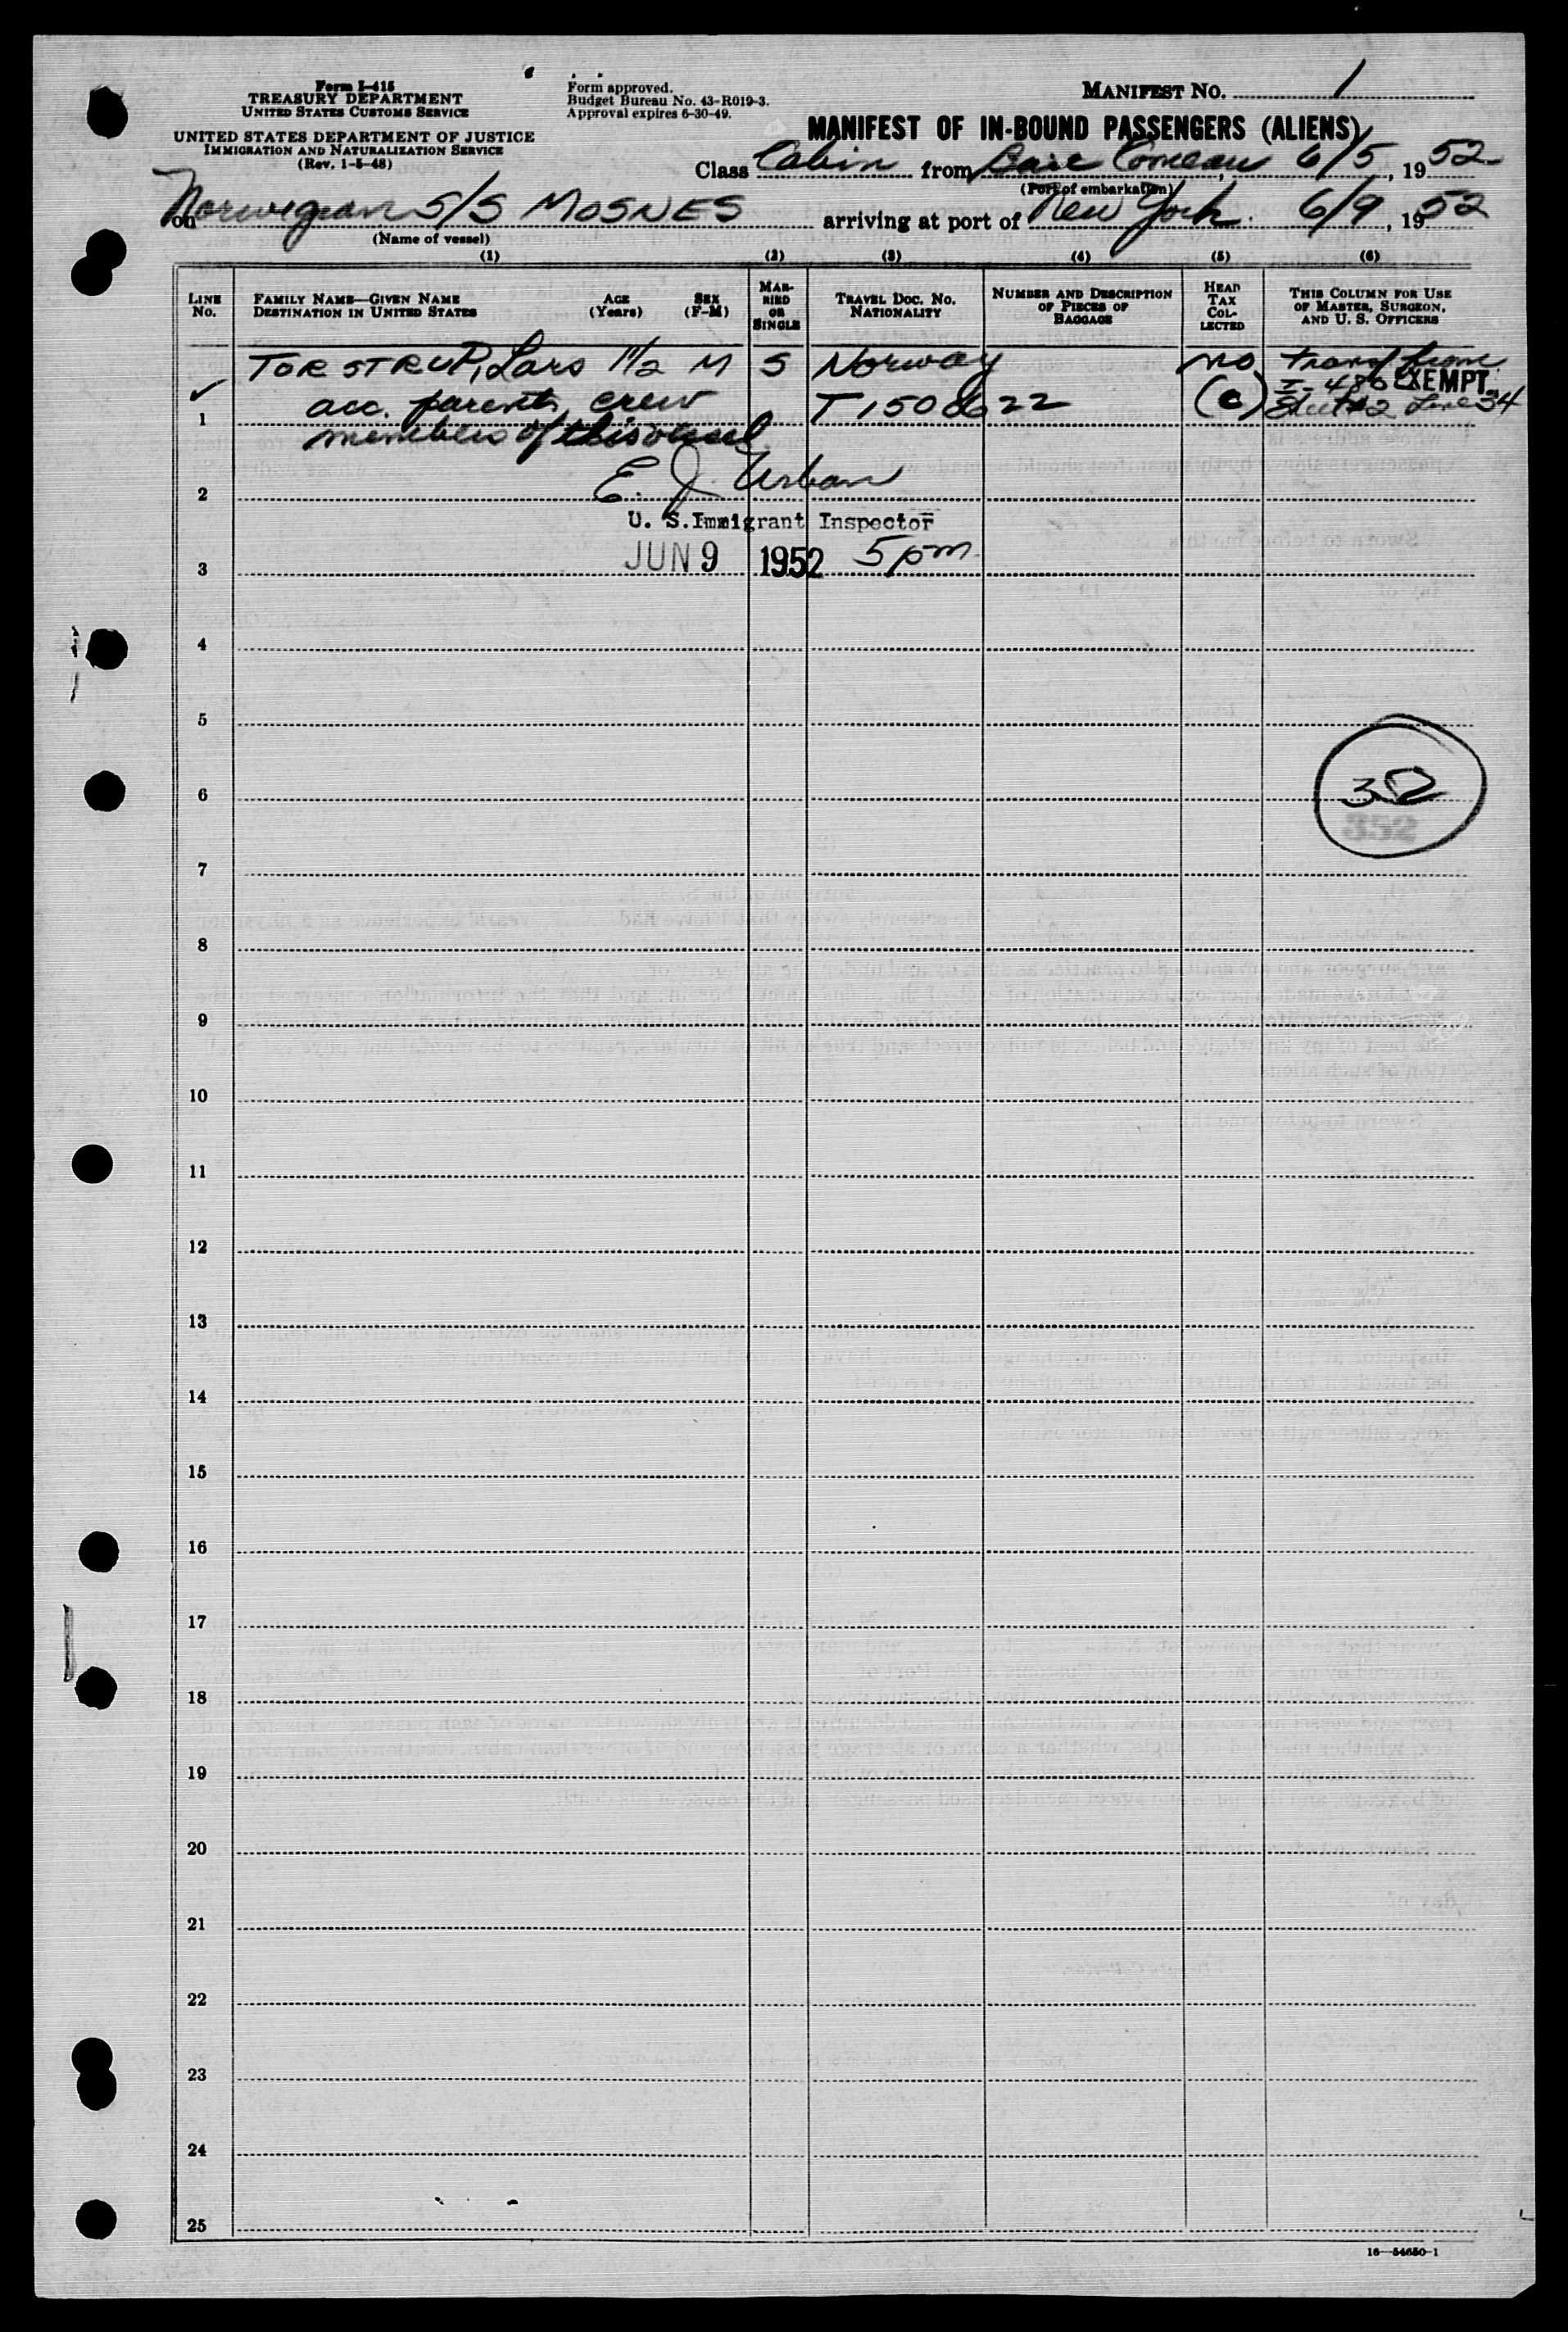 Form I-415
TREASURY DEPARTMENT
UNITED STATES CUSTOMS SERVICE
UNITED STATES DEPARTMENT OF JUSTICE
IMMIGRATION AND NATURALIZATION SERVICE
(Rev. 1-5-48)
Form approved.
Budget Bureau No. 43-R019-3.
Approval expires 6-30-49.
MANIFEST NO. 1
MANIFEST OF IN-BOUND PASSENGERS (ALIENS)
Class Cabin from Baie Comeau, 6/5, 1952
(Port of embarkation)
on Norwegian S/S MOSNES arriving at port of New York 6/9, 1952
(Name of vessel)
(1) (2) (3) (4) (5) (6)
LINE NO.
FAMILY NAME—GIVEN NAME
DESTINATION IN UNITED STATES
AGE (Years)
SEX (F-M)
MARRIED OR SINGLE
TRAVEL DOC. NO.
NATIONALITY
NUMBER AND DESCRIPTION OF PIECES OF BAGGAGE
HEAD TAX COLLECTED
THIS COLUMN FOR USE OF MASTER, SURGEON, AND U. S. OFFICERS
TORSTRUP, Lars 1 1/2 M S Norway no transf from
acc. parents crew I-480 EXEMPT
1 T1508622 (c) Sheet #2 Line 34
members of this vessel
E. J. Urban
2
U. S. Immigrant Inspector
JUN 9 1952 5 pm
3
4
5
6
352
352
7
8
9
10
11
12
13
14
15
16
17
18
19
20
21
22
23
24
25
16—54650-1